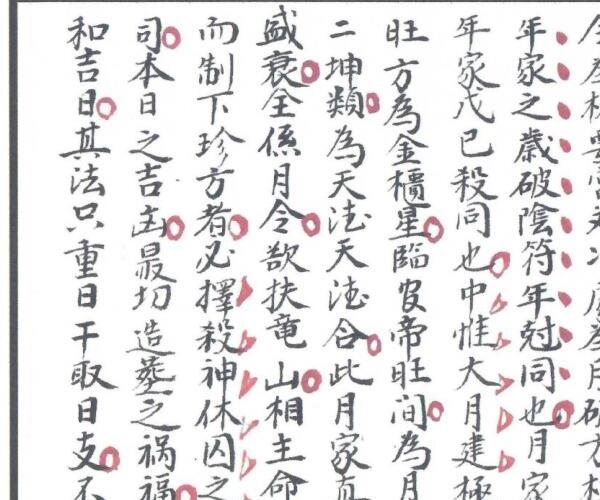 年家之歲破陰符年尅同也月家
年家戊己殺同也中惟大月建極
旺方為金櫃星臨官帝旺间為月
二坤類為天㳒天㳒合此月家真
盛衰全係月令欲扶竜山相主命
而制下珍方者必擇殺神休囚之
司本日之吉凶最切造塟之禍福
和吉日其法只重日干取日支不